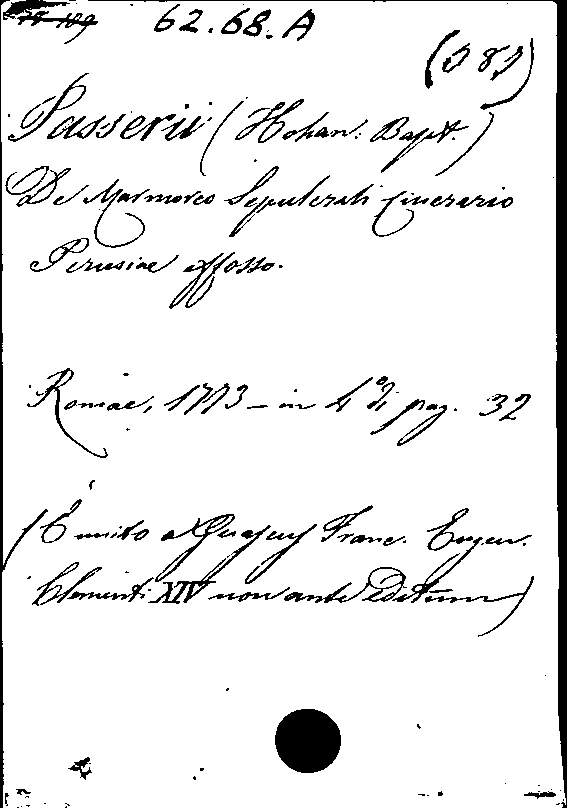 62.68.A
Passerii (Johan: Bapt.)
De Marmoreo Sepulcrali Cinerario
Perusiae effosso.
Romae, 1773 - in 4° di pag. 32
(È unito a Franc. Eugen.
Clementi XIV non ante editum)